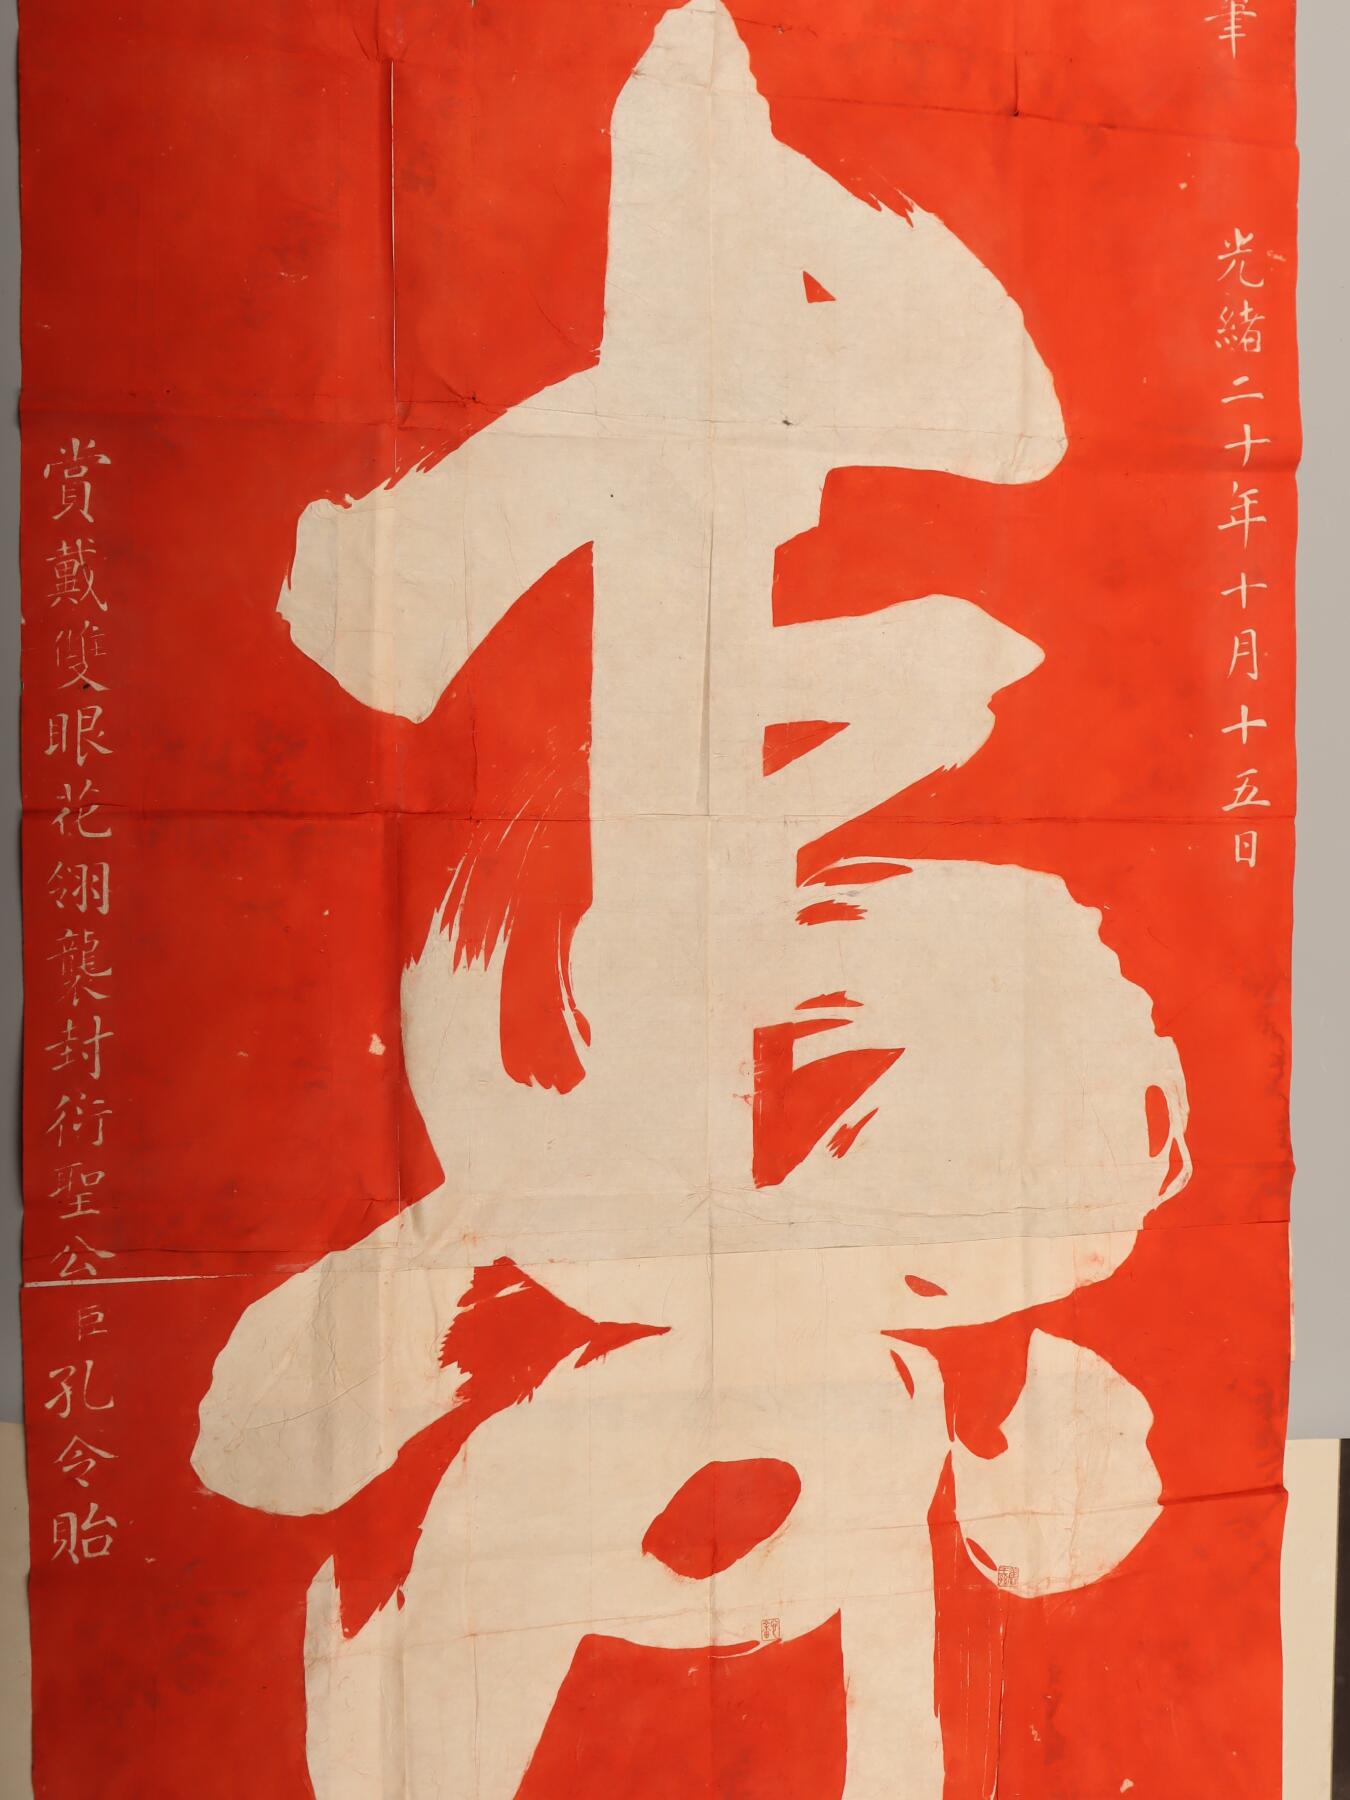 筆 光緒二十年十月十五日
壽
賞戴雙眼花翎襲封衍聖公臣孔令貽